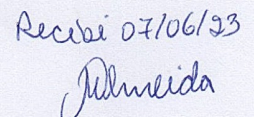 Recibi 07/06/23
JAlmeida